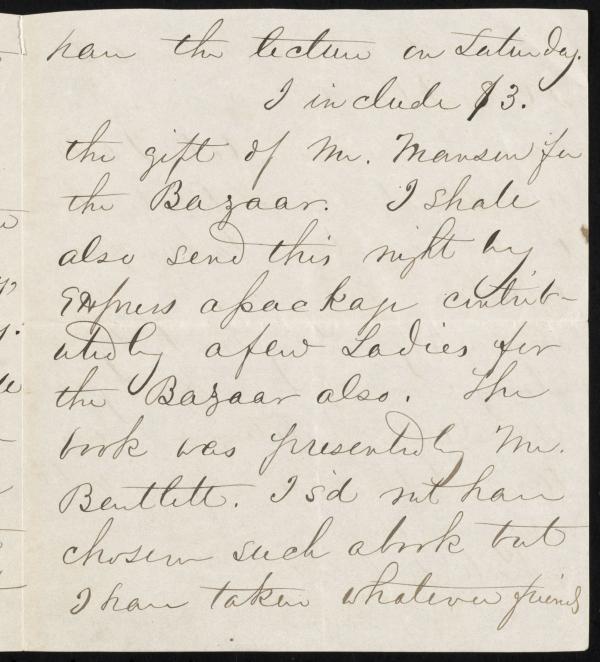 have the lecture on Saturday.
I include $3.
the gift of Mr. Manson for
the Bazaar. I shale
also send this night by
Express a package contrib-
uted by a few Ladies for
the Bazaar also. The
book was presented by Mr.
Bentlett. I sd not have
chosen such a book but
I have taken whatever friends